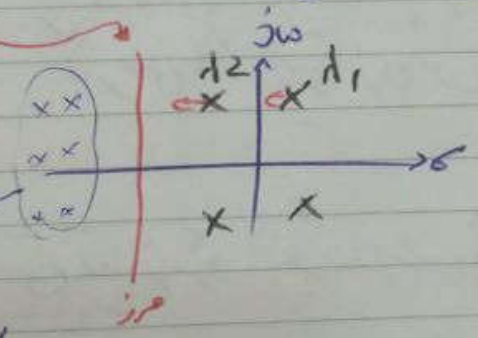 jω
λ2 λ1
σ
مرز